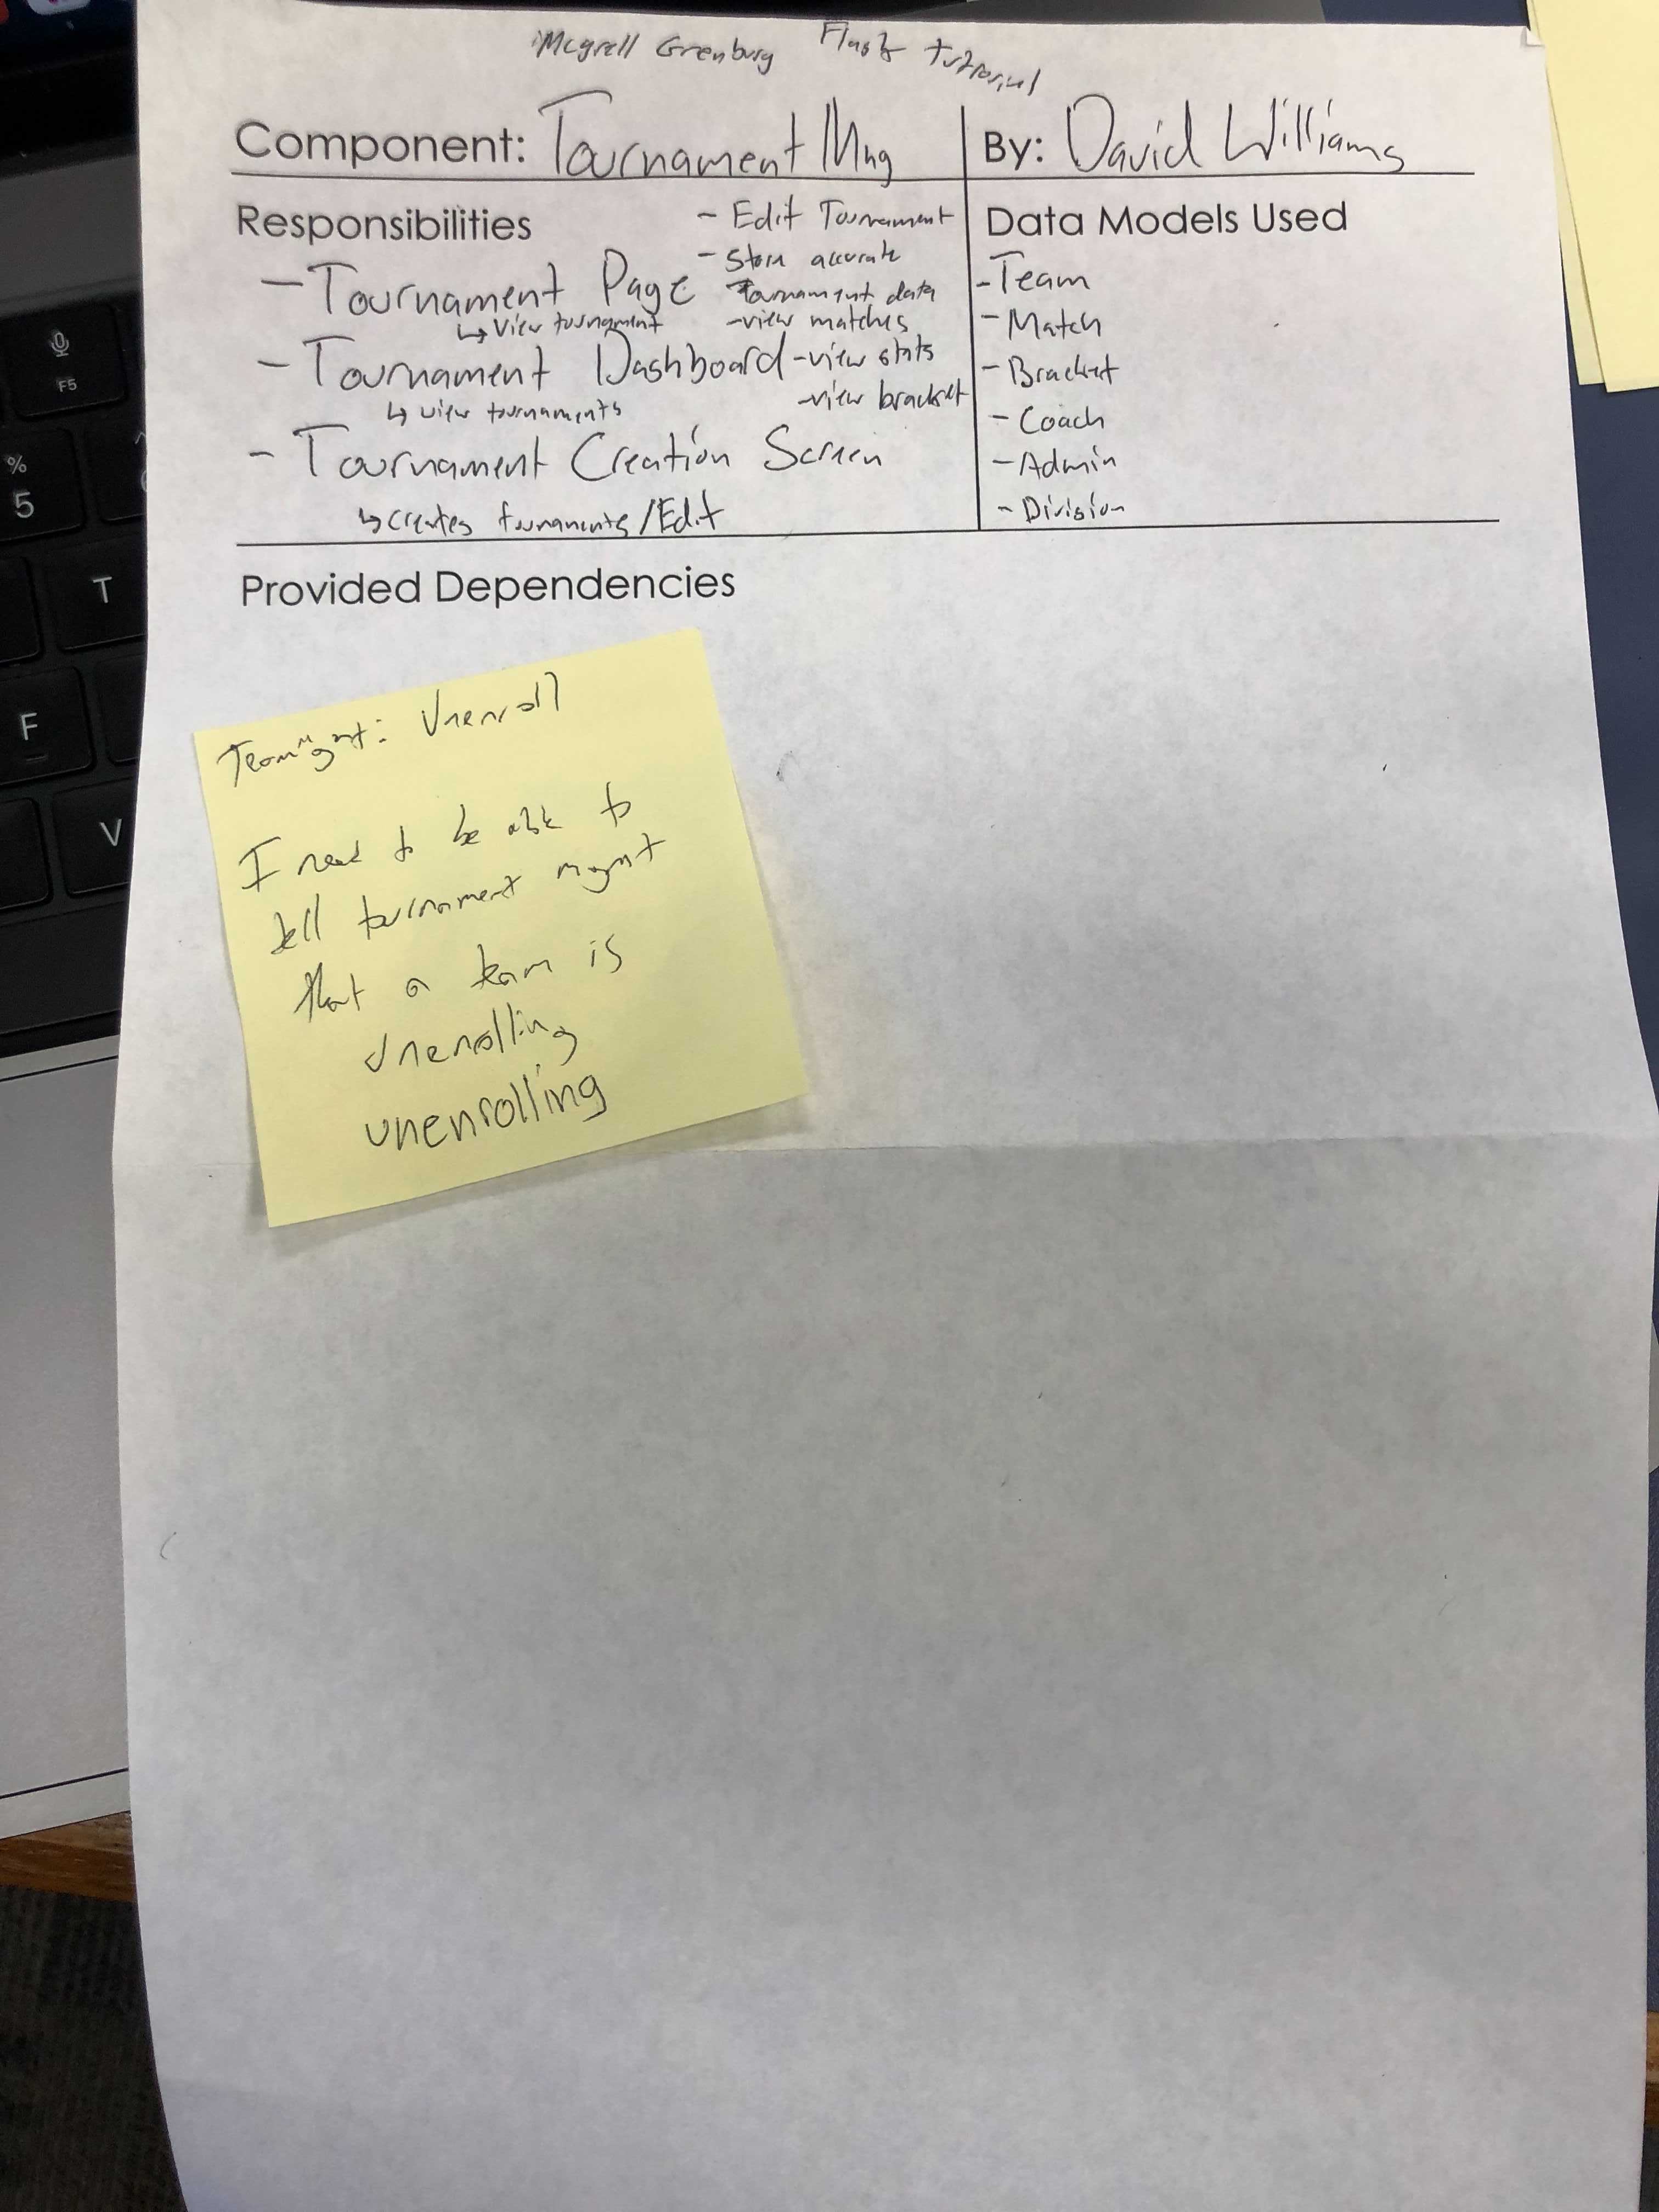 Grenburg Flask tutorial
Component: Tournament Mng
By: David Williams
Responsibilities
- Tournament Page
↳ View tournament
- Tournament Dashboard
↳ view tournaments
- Tournament Creation Screen
↳ creates tournaments/Edit
- Edit Tournament
- Store accurate
Tournament data
- view matches
- view stats
- view bracket
Data Models Used
- Team
- Match
- Bracket
- Coach
- Admin
- Division
Provided Dependencies
Team Mgmt: Unenroll
I need to be able to
tell tournament mgmt
that a team is
unenrolling
unenrolling
F5
%
5
T
F
V